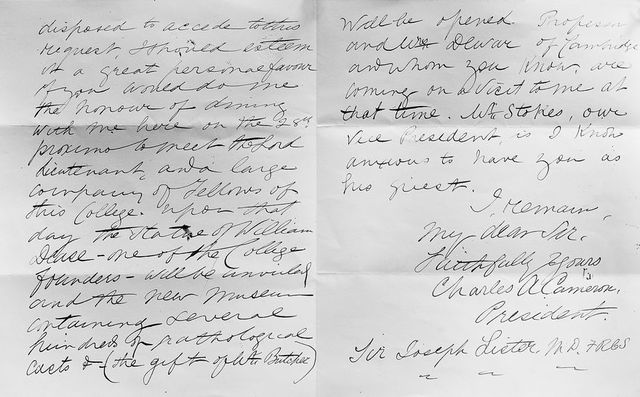 disposed to accede to this
request, I should esteem
it a great personal favour
if you would do me
the honour of dining
with me here on the 28th
proximo to meet the Lord
Lieutenant, and a large
company of Fellows of
this College. Upon that
day the Statue of William
Dease - one of the College
founders - will be unveiled
and the new Museum
containing several
hundreds of pathological
casts & - (the gift of Mr Butcher)
will be opened. Professor
and Mrs Dewar of Cambridge
and whom you know, are
coming on a visit to me at
that time. Mr Stokes, our
Vice President, is I know
anxious to have you as
his guest.
I remain,
My dear Sir,
Faithfully yours
Charles A. Cameron,
President.
Sir Joseph Lister, M.D. FRCS